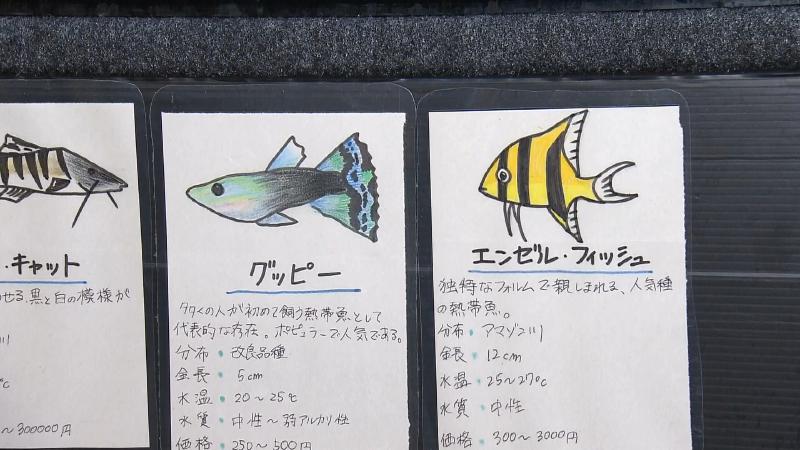 ・キャット
せる黒と白の模様が
℃
～300000円
グッピー
多くの人が初めて飼う熱帯魚として
代表的な存在。ポピュラーで人気である。
分布・改良品種
全長・5cm
水温・20～25℃
水質・中性～弱アルカリ性
価格・250～500円
エンゼル・フィッシュ
独特なフォルムで親しまれる、人気種
の熱帯魚。
分布・アマゾン川
全長・12cm
水温・25～27℃
水質・中性
価格・300～3000円